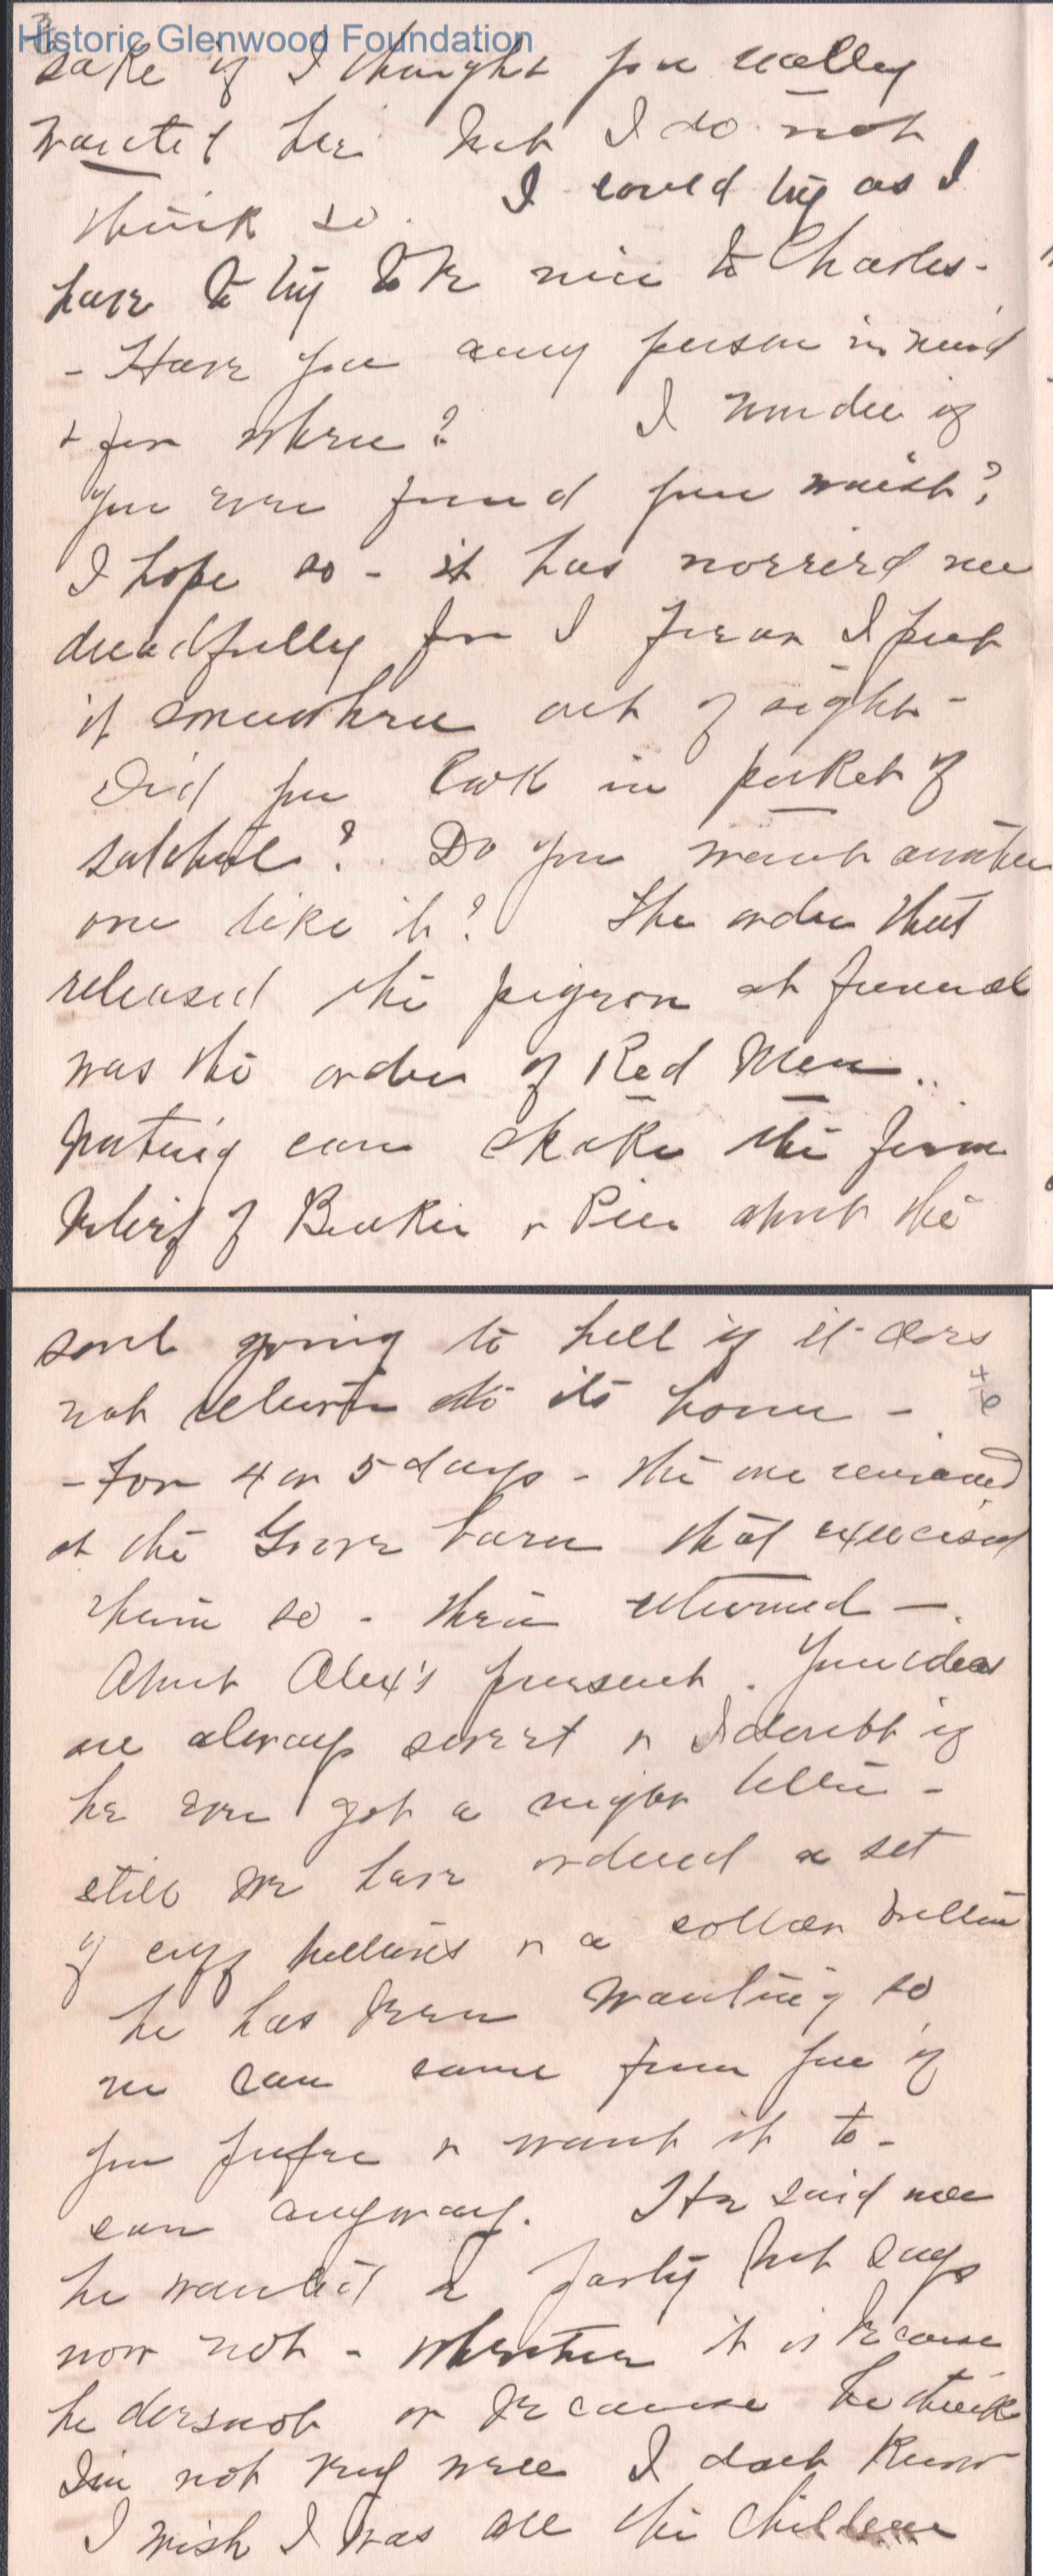 Historic Glenwood Foundation
3
sake if I thought you really
wanted her but I do not
think so. I could try as I
have to try to be nice to Charles -
- Have you any person in mind
+ for where? I wonder if
you ever found your waist?
I hope so - it has worried me
dreadfully for I fear I put
it somewhere out of sight -
Did you look in pocket of
satchel? Do you want another
one like it? The order that
released the pigeon at funeral
was the order of Red Men..
Nothing can shake the firm
belief of + about the
soul going to hell if it does
not return to its home -
4
- For 4 or 5 days - the one remained
at the barn that exercised
them so - then returned -.
About Alex's present. Your ideas
are always sweet + I doubt if
he ever got a night letter -
still we have ordered a set
of cuff buttons + a collar button
he has been wanting so
we can same from you if
you prefer + want it to -
can anyway. He said me
he wanted a party but says
now not - whether it is because
he doesnot or because he think
I'm not very well I dont know
I wish I was all the children